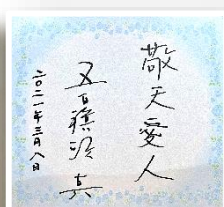 敬天愛人
五百籏頭 真
二〇二一年三月八日